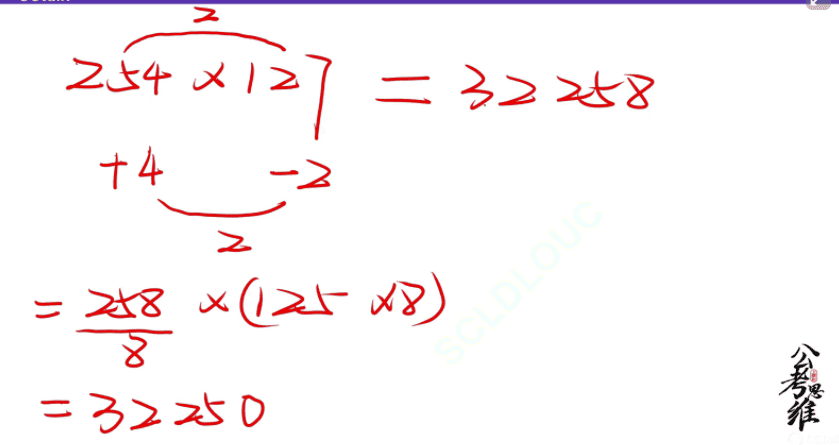 2
254 × 127 = 32258
+4 -2
2
= 258/8 × (125 × 8)
= 32250
SCLDLOUC
公考思维